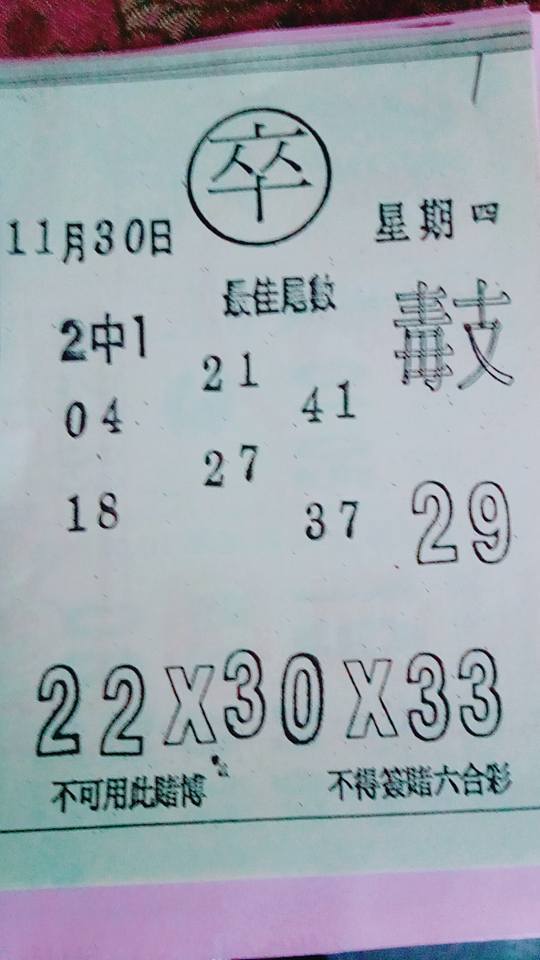 卒
11月30日 星期四
最佳尾數
2中1
21
04 41
27
18 37 29
22X30X33
不可用此賭博 不得簽賭六合彩